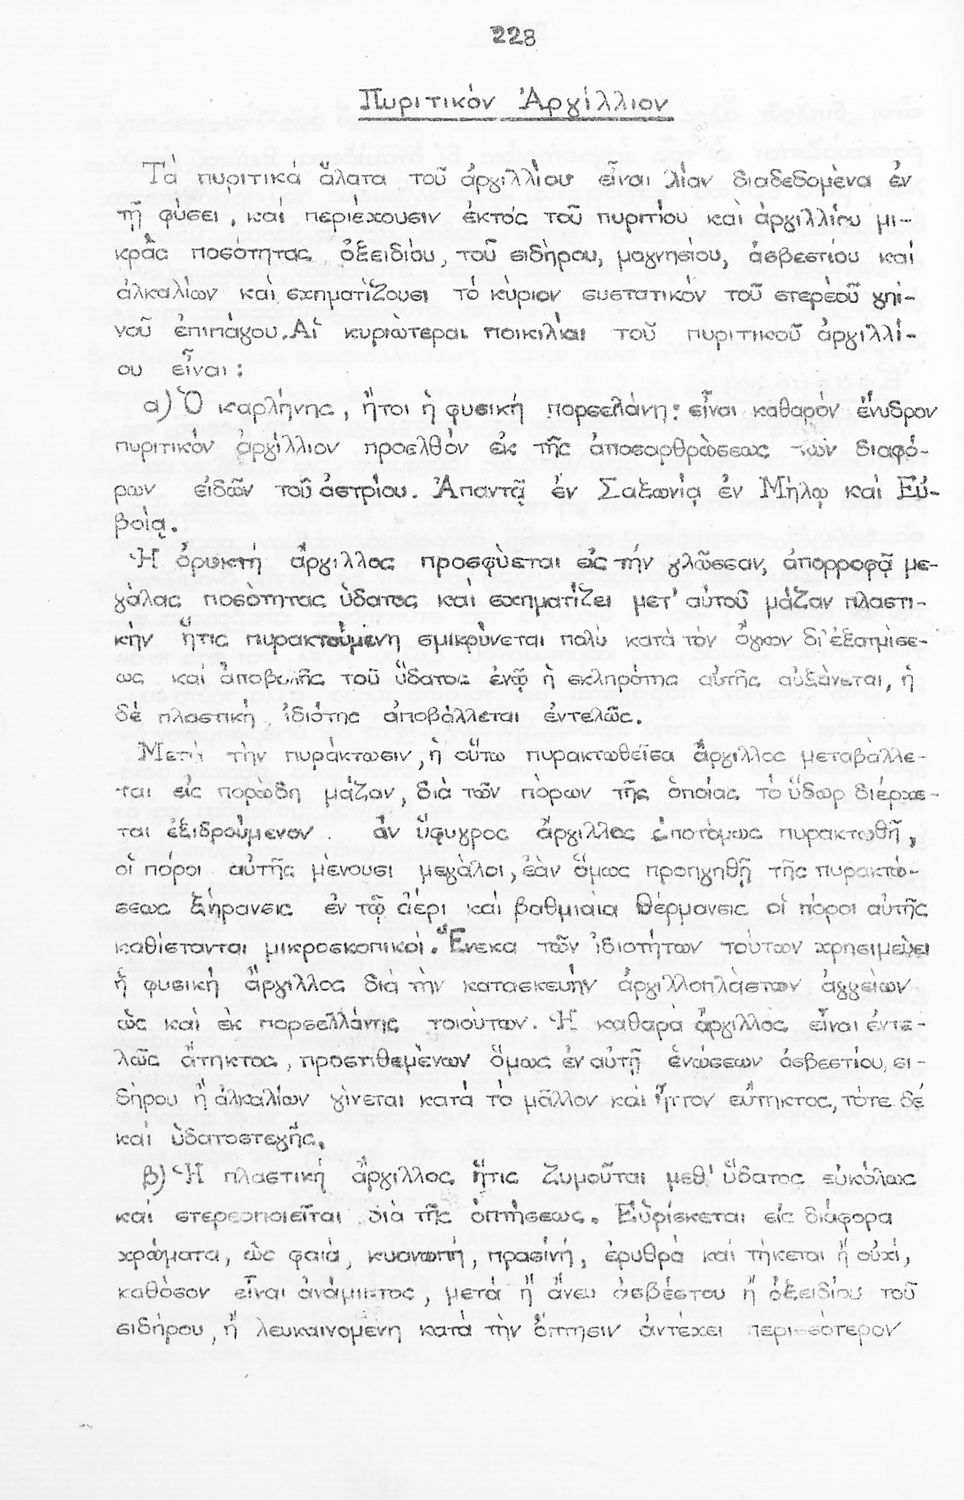 228
Πυριτικόν Ἀργίλλιον
Τά πυριτικά ἅλατα τοῦ ἀργιλλίου εἶναι λίαν διαδεδομένα ἐν
τῇ φύσει, καί περιέχουσιν ἐκτός τοῦ πυριτίου καί ἀργιλλίου μι-
κρᾶς ποσότητας ὀξειδίου, τοῦ σιδήρου, μαγνησίου, ἀσβεστίου καί
ἀλκαλίων καί σχηματίζουσι τό κύριον συστατικόν τοῦ στερεοῦ γηί-
νοῦ ἐπιπάγου. Αἱ κυριώτεραι ποικιλίαι τοῦ πυριτικοῦ ἀργιλλί-
ου εἶναι:
α) Ὁ καρλήνης, ἤτοι ἡ φυσική πορσελάνη: εἶναι καθαρόν ἔνυδρον
πυριτικόν ἀργίλλιον προελθόν ἐκ τῆς ἀποσαρθρώσεως τῶν διαφό-
ρων εἰδῶν τοῦ ἀστρίου. Ἀπαντᾷ ἐν Σαξωνίᾳ ἐν Μήλῳ καί Εὐ-
βοίᾳ.
Ἡ ὀρυκτή ἄργιλλος προσφύεται εἰς τήν γλῶσσαν, ἀπορροφᾷ με-
γάλας ποσότητας ὕδατος καί σχηματίζει μετ' αὐτοῦ μάζαν πλαστι-
κήν ἥτις πυρακτουμένη σμικρύνεται πολύ κατά τον ὄγκον δι' ἐξατμίσε-
ως καί ἀποβολῆς τοῦ ὕδατος ἐνῷ ἡ σκληρότης αὐτῆς αὐξάνεται, ἡ
δέ πλαστική ἰδιότης ἀποβάλλεται ἐντελῶς.
Μετά τήν πυράκτωσιν, ἡ οὕτω πυρακτωθεῖσα ἄργιλλος μεταβάλλε-
ται εἰς πορώδη μάζαν, διά τῶν πόρων τῆς ὁποίας τό ὕδωρ διέρχε-
ται ἐξιδρούμενον. ἄν ὕφυγρος ἄργιλλος ἀποτόμως πυρακτωθῇ,
οἱ πόροι αὐτῆς μένουσι μεγάλοι, ἐάν ὅμως προηγηθῇ τῆς πυρακτώ-
σεως ξήρανσις ἐν τῷ ἀέρι καί βαθμιαία θέρμανσις οἱ πόροι αὐτῆς
καθίστανται μικροσκοπικοί. Ἕνεκα τῶν ἰδιοτήτων τούτων χρησιμεύει
ἡ φυσική ἄργιλλος διά τήν κατασκευήν ἀργιλλοπλάστων ἀγγείων
ὡς καί ἐκ πορσελλάνης τοιούτων. Ἡ καθαρά ἄργιλλος εἶναι ἐντε-
λῶς ἄτηκτος, προστιθεμένων ὅμως ἐν αὐτῇ ἑνώσεων ἀσβεστίου, σι-
δήρου ἤ ἀλκαλίων γίνεται κατά τό μᾶλλον καί ἧττον εὔτηκτος, τότε δέ
καί ὑδατοστεγής.
β) Ἡ πλαστική ἄργιλλος ἥτις ζυμοῦται μεθ' ὕδατος εὐκόλως
καί στερεοποιεῖται διά τῆς ὀπτήσεως. Εὑρίσκεται εἰς διάφορα
χρώματα, ὡς φαιά, κυανωπή, πρασίνη, ἐρυθρά καί τήκεται ἤ οὐχί,
καθόσον εἶναι ἀνάμικτος, μετά ἤ ἄνευ ἀσβέστου ἤ ὀξειδίου τοῦ
σιδήρου, ἤ λευκαινομένη κατά τήν ὄπτησιν ἀντέχει περισσότερον